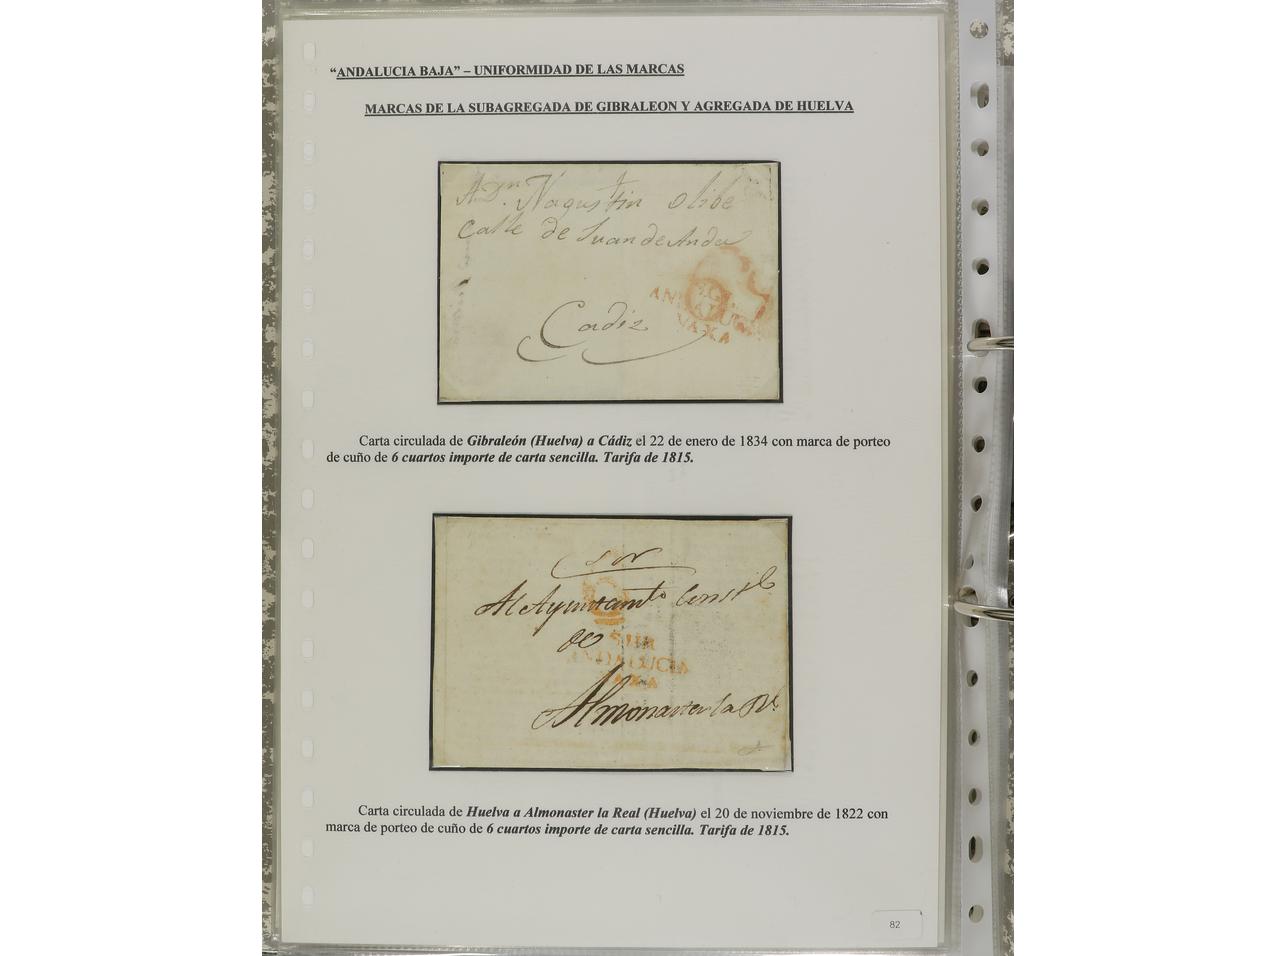 “ANDALUCIA BAJA” – UNIFORMIDAD DE LAS MARCAS
MARCAS DE LA SUBAGREGADA DE GIBRALEON Y AGREGADA DE HUELVA
A Dn. Nagustin olibe
Calle de Juan de Anda
Cadiz
ANDALUCIA
VAXA
Carta circulada de Gibraleón (Huelva) a Cádiz el 22 de enero de 1834 con marca de porteo
de cuño de 6 cuartos importe de carta sencilla. Tarifa de 1815.
Al Ayuntamto Constl
de
ANDALUCIA
VAXA
Almonaster la Rl
Carta circulada de Huelva a Almonaster la Real (Huelva) el 20 de noviembre de 1822 con
marca de porteo de cuño de 6 cuartos importe de carta sencilla. Tarifa de 1815.
82